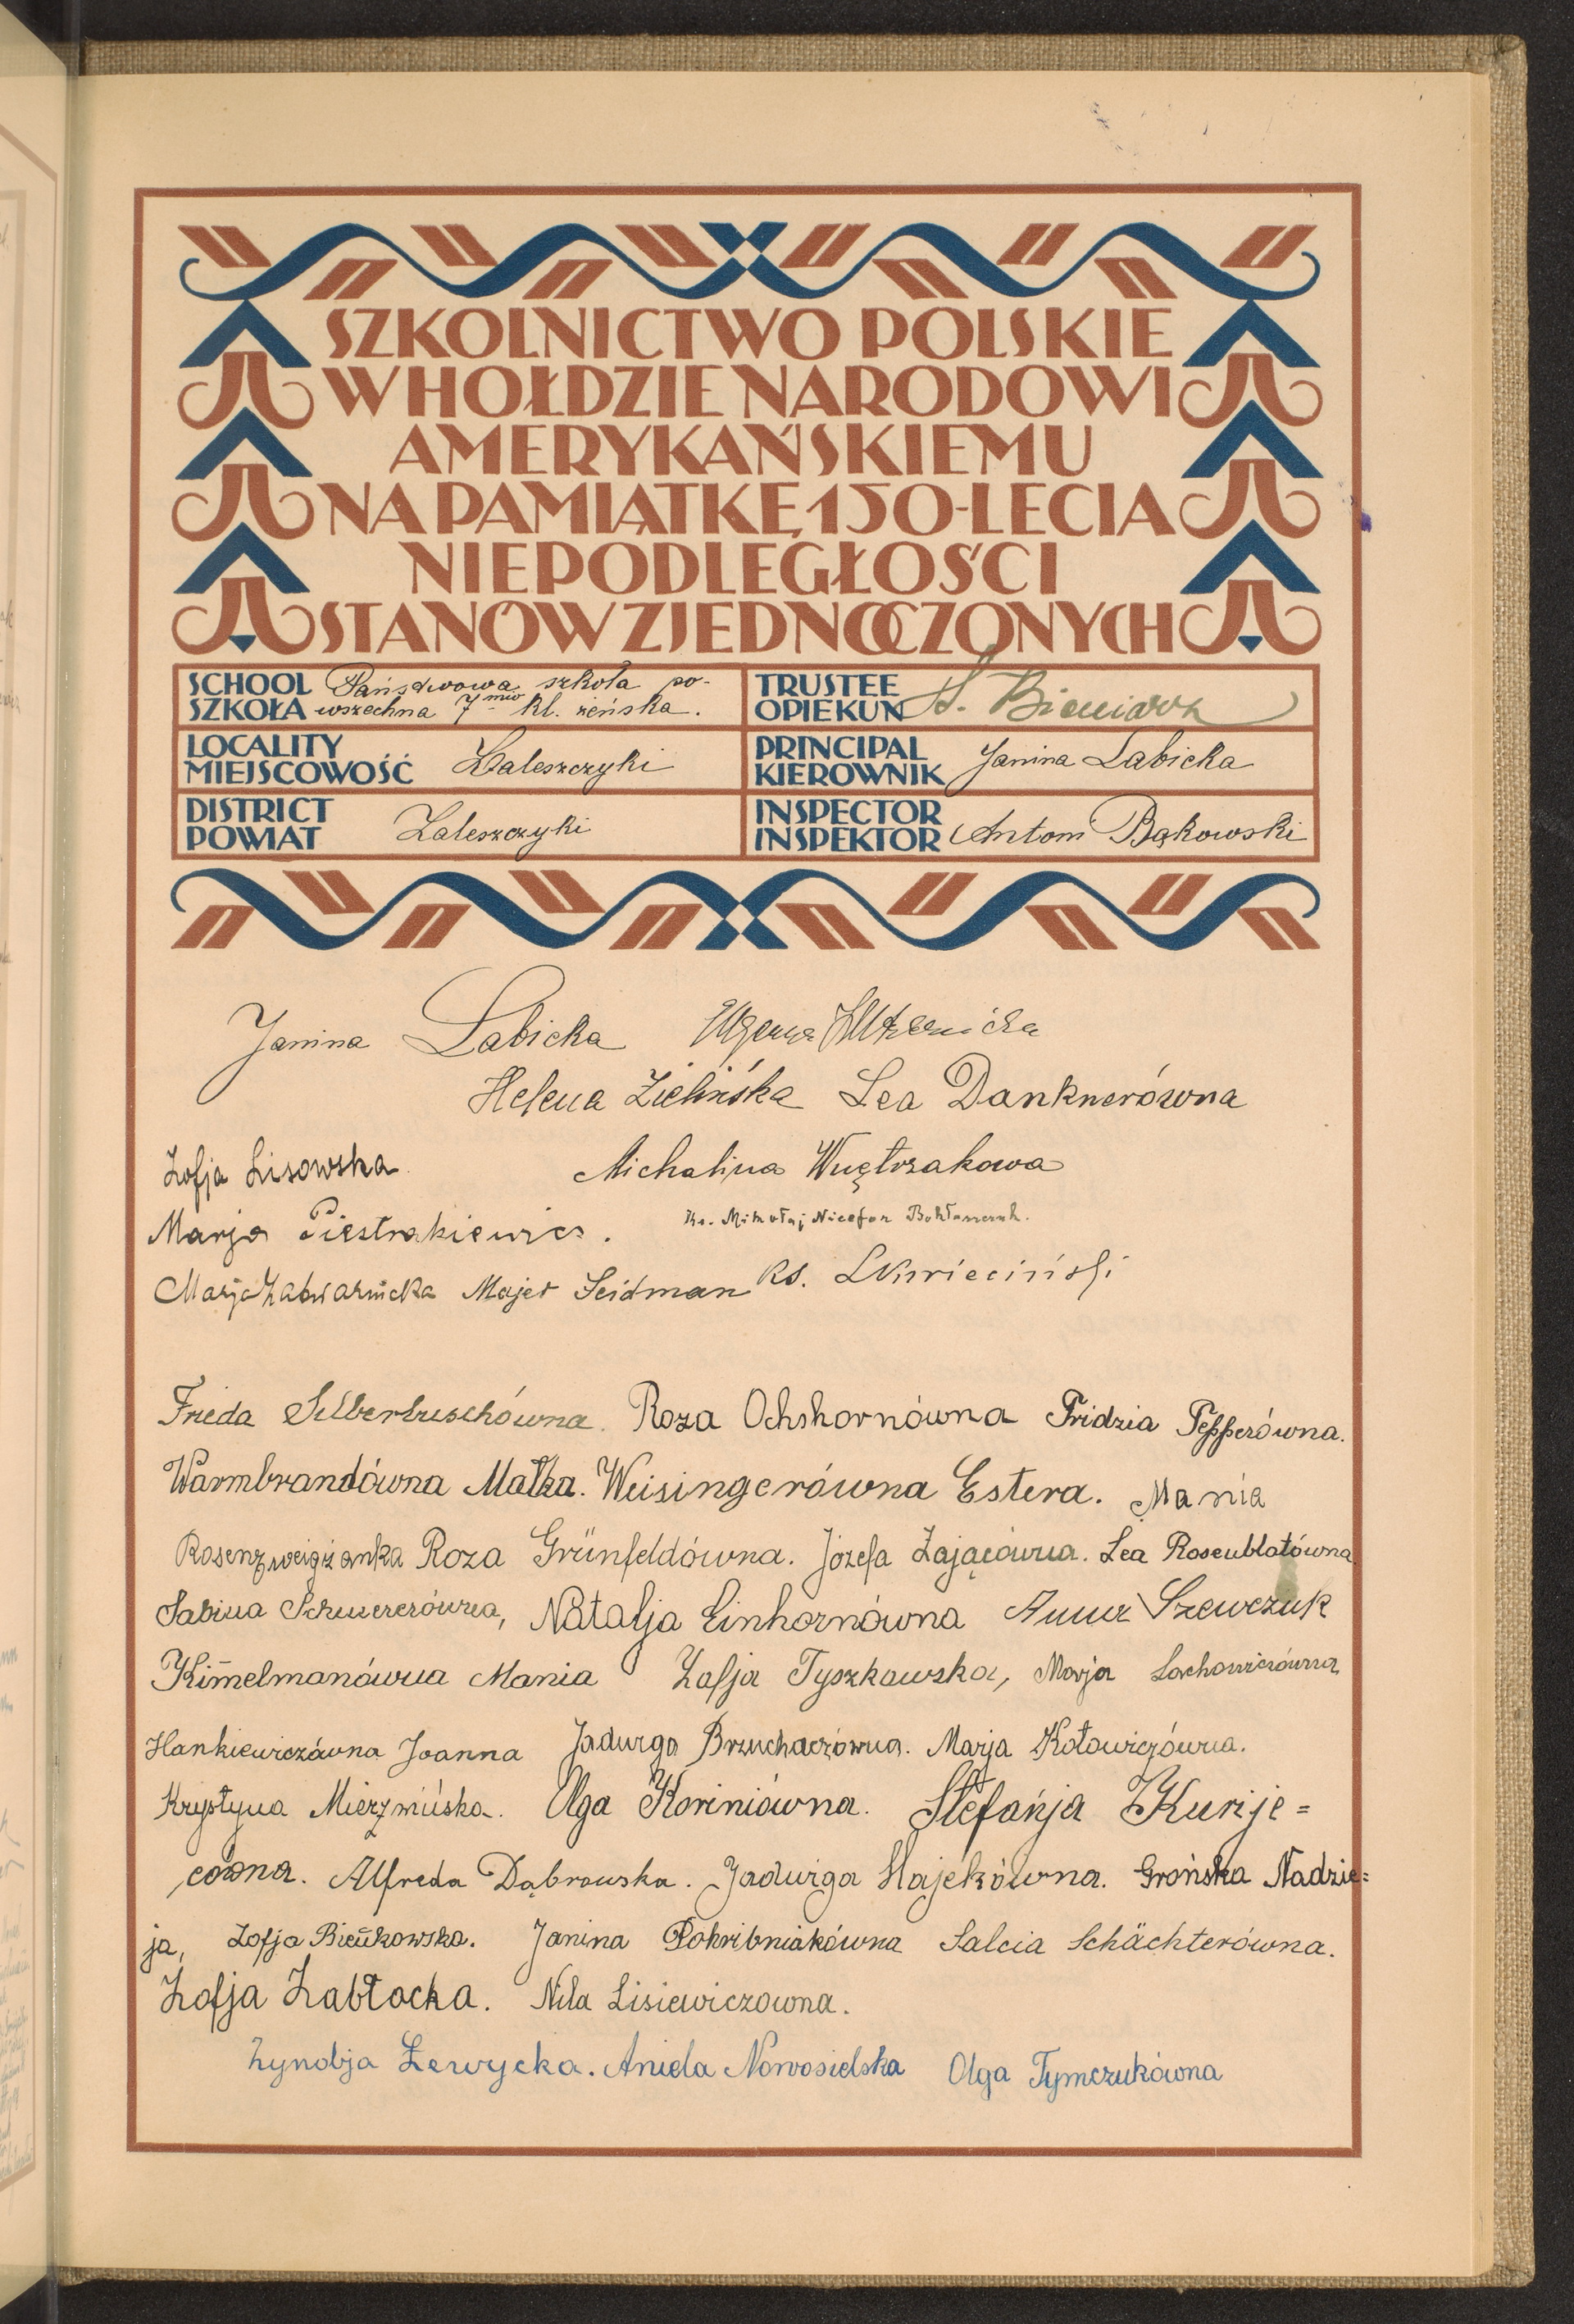 SZKOLNICTWO POLSKIE
W HOŁDZIE NARODOWI
AMERYKAŃSKIEMU
NA PAMIĄTKĘ 150-LECIA
NIEPODLEGŁOŚCI
STANÓW ZJEDNOCZONYCH
SCHOOL
SZKOŁA
Państwowa szkoła po-
wszechna 7-mio kl. żeńska.
TRUSTEE
OPIEKUN
S. Bieniarz
LOCALITY
MIEJSCOWOŚĆ
Zaleszczyki
PRINCIPAL
KIEROWNIK
Janina Labicka
DISTRICT
POWIAT
Zaleszczyki
INSPECTOR
INSPEKTOR
Antoni Bąkowski
Janina Labicka
Helena Zielińska Lea Danknerówna
Zofja Lisowska
Michalina Wnętrzakowa
Marja Piestrakiewicz.
Ks. Mikołaj Nicefor
Marja Zabwarnicka Majer Seidman ks. Kwieciński
Frieda Silberbuschówna. Roza Ochshornówna Fridzia Pepperówna.
Warmbrandówna Malka. Weisingerówna Estera. Mania
Rosenzweiżanka Roza Grünfeldówna. Józefa Zającówna. Lea Rosenblatówna
Sabina Schnererówna, Natalja Einhornówna Anna Szewczuk
Kim̄elmanówna Mania Zofja Tyszkowska, Marja Lachowiczówna
Hankiewiczówna Joanna Jadwiga Brzuchaczówna. Marja Kotowiczówna.
Krystyna Mierzwińska. Olga Koriniówna. Stefanja Kurije=
cówna. Alfreda Dąbrowska. Jadwiga Hajekówna. Grońska Nadzie=
ja, Zofja Bieńkowska. Janina Pohribniakówna Salcia Schächterówna.
Zofja Zabłocka. Nila Lisiewiczowna.
Zynobja Lewycka. Aniela Nowosielska Olga Tymczukówna